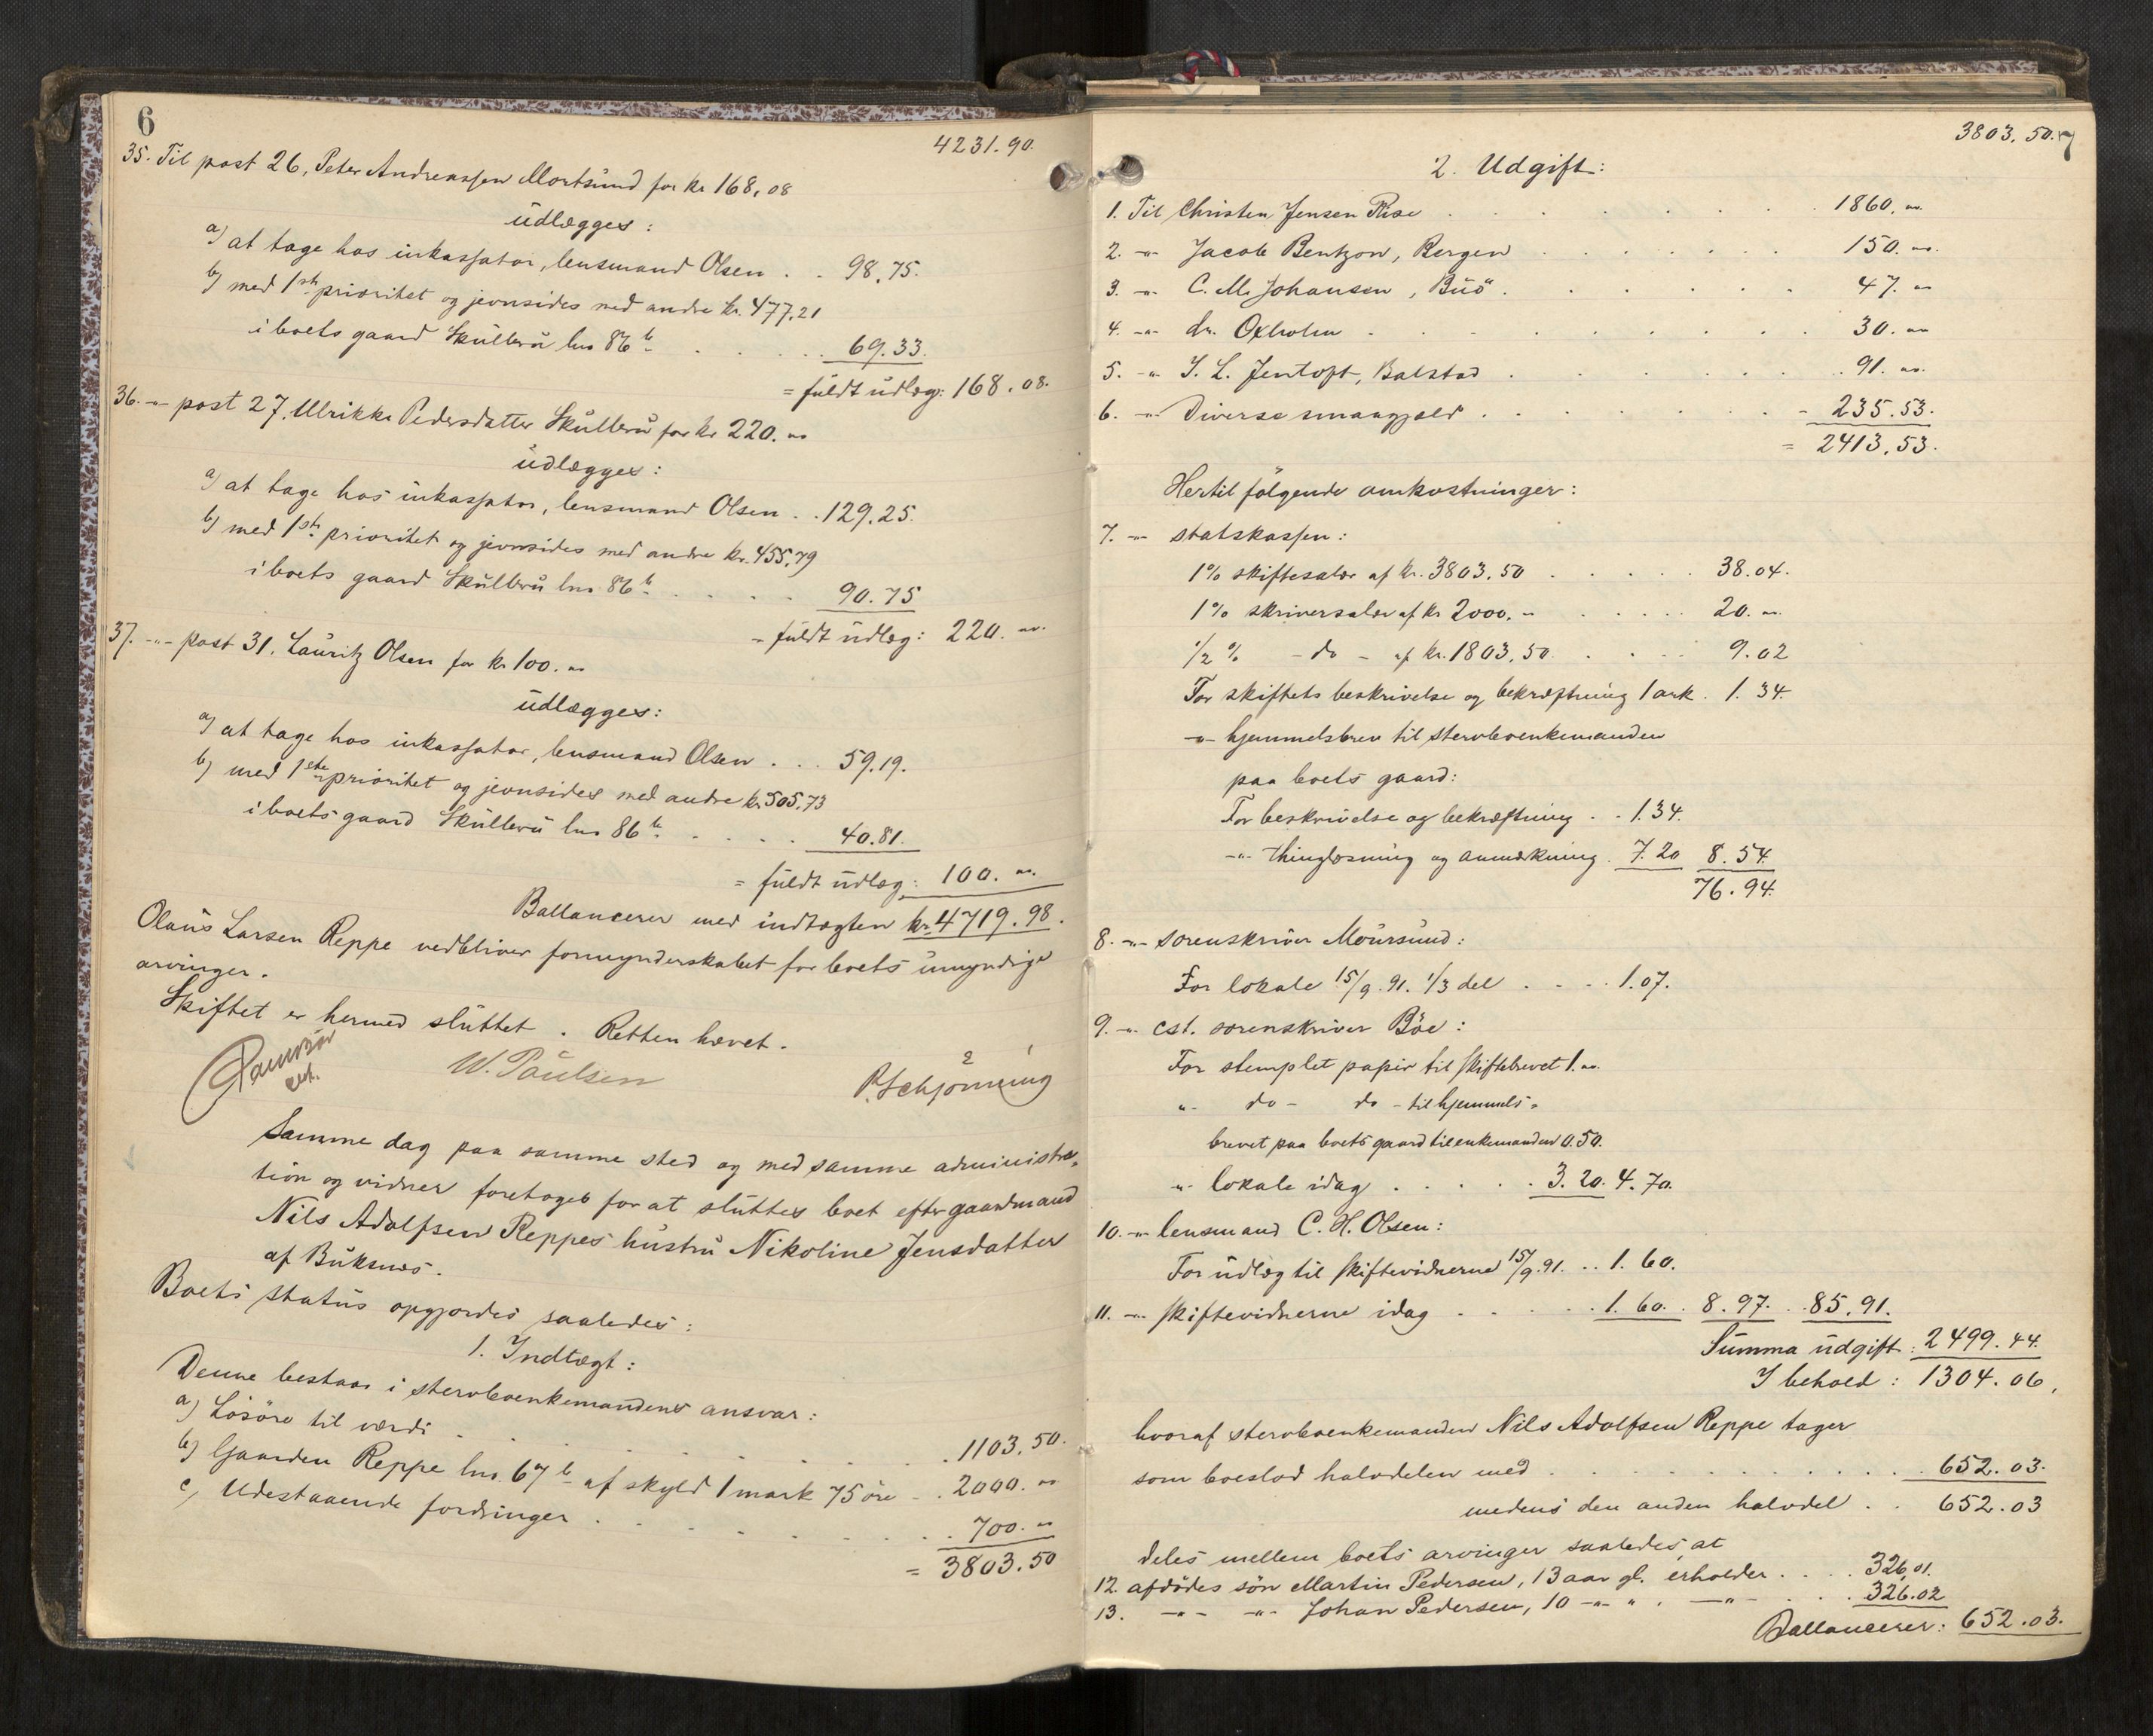 6
4231.90.
35. Til post 26, Peter Andreassen Mortsund for kr 168,08
udlægges:
a) at tage hos inkassator, lensmand Olsen . . 98,75.
b) med 1ste prioritet og jevnsides med andre kr. 477,21
i boets gaard Skullbru lno 86 b . . . . . 69.33.
= fuldt udlæg: 168.08.
36. -"- post 27. Ulrikke Pedersdatter Skullbru for kr 220. "
udlægges:
a) at tage hos inkassator, lensmand Olsen . . 129.25.
b) med 1ste prioritet og jevnsides med andre kr. 455,79
i boets gaard Skullbru lno 86 b . . . . . 90.75
= fuldt udlæg: 220. "
37. -"- post 31. Lauritz Olsen for kr 100. "
udlægges:
a) at tage hos inkassator, lensmand Olsen . . . 59.19.
b) med 1ste prioritet og jevnsides med andre kr 505,73
i boets gaard Skullbru lno 86 b . . . . 40.81.
= fuldt udlæg: 100. "
Ballancerer med indtægten kr. 4719.98.
Olaus Larsen Reppe vedbliver formynderskabet for boets umyndige
arvinger.
Skiftet er hermed sluttet. Retten hævet.
W. Paulsen
P. Schjønning
Samme dag paa samme sted og med samme administra-
tion og vidner foretoges for at sluttes boet efter gaardmand
Nils Adolfsen Reppes hustru Nikoline Jensdatter
af Buksnes.
Boets status opgjordes saaledes:
1. Indtægt:
Denne bestaar i stervboenkemandens ansvar:
a) Løsøre til værdi . . . . . . . . . 1103.50.
b) Gaarden Reppe lno. 67 b af skyld 1 mark 75 øre . . 2000. "
c) Udestaaende fordringer . . . . . . . 700. "
= 3803.50
3803.50.
7
2. Udgift:
1. Til Christen Jensen Rise . . . . . . . 1860. "
2. -"- Jacob Bentzon, Bergen . . . . . . 150. "
3. -"- C. M. Johansen, Buø . . . . . . 47. "
4. -"- dr. Oxholm . . . . . . . . 30. "
5. -"- I. L. Jentoft, Balstad . . . . . . 91. "
6. -"- Diverse smaagjæld . . . . . . . 235.53.
= 2413.53.
Hertil følgende omkostninger:
7. -"- statskassen:
1% skiftesalær af kr. 3803,50 . . . . . 38.04.
1% skriversalær af kr 2000. " . . . . 20. "
1/2 % - do - af kr. 1803,50 . . . . 9.02
For skiftets beskrivelse og bekræftning 1 ark . 1.34.
-"- hjemmelsbrev til stervboenkemanden
paa boets gaard:
For beskrivelse og bekræftning . . 1.34.
-"- thinglæsning og anmærkning . 7.20 8.54.
76.94.
8. -"- sorenskriver Moursund:
For lokale 15/9.91. 1/3 del . . . . 1.07.
9. -"- cst. sorenskriver Bøe:
For stemplet papir til skiftebrevet 1. "
"- do - do - til hjemmels-
brevet paa boets gaard til enkemanden 0.50.
"- lokale idag . . . . . 3.20. 4.70.
10. -"- lensmand C. H. Olsen:
For udlæg til skiftevidnerne 15/9.91. . . 1.60.
11. -"- skiftevidnerne idag . . . . . 1.60. . 8.97. . 85.91.
Summa udgift: 2499.44.
I behold: 1304.06,
hvoraf stervboenkemanden Nils Adolfsen Reppe tager
som boeslod halvdelen med . . . . . . . . . 652.03.
medens den anden halvdel . . 652.03
deles mellem boets arvinger saaledes, at
12. afdødes søn Martin Pedersen, 13 aar gl. erholder . . . . 326,01.
13. -"- -"- Johan Pedersen, 10 -"- " -"- . . . 326.02
Ballancerer: 652.03.